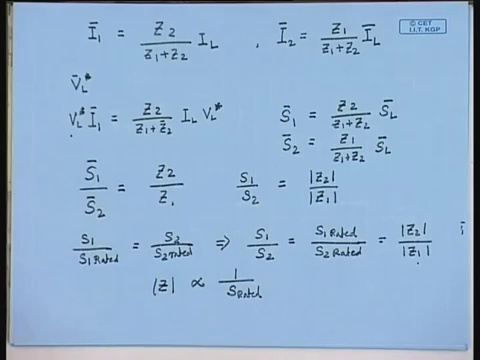 Ī₁ = Z₂/(Z₁+Z₂) I_L , Ī₂ = Z₁/(Z₁+Z₂) Ī_L
© CET
I.I.T. KGP
V̄_L*
V_L* Ī₁ = Z₂/(Z₁+Z₂) I_L V_L*
S̄₁ = Z₂/(Z₁+Z₂) S̄_L
S̄₂ = Z₁/(Z₁+Z₂) S̄_L
S̄₁/S̄₂ = Z₂/Z₁ S₁/S₂ = |Z₂|/|Z₁|
S₁/S₁Rated = S₂/S₂rated ⇒ S₁/S₂ = S₁Rated/S₂Rated = |Z₂|/|Z₁|
|Z| ∝ 1/S_Rated